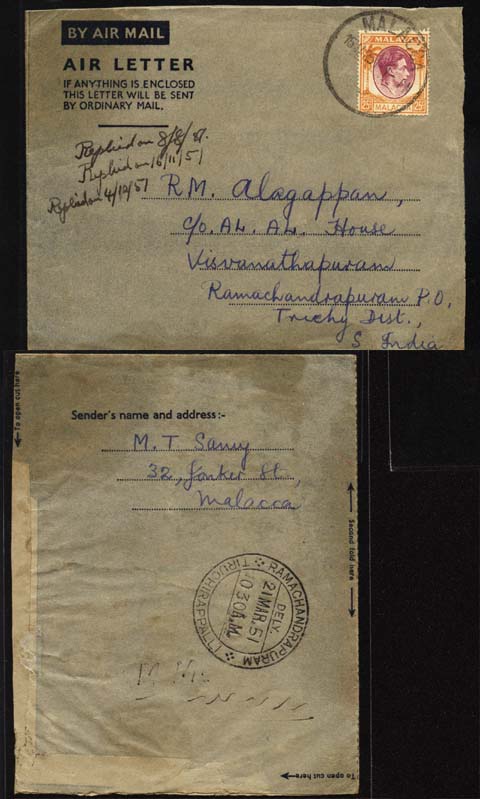 BY AIR MAIL
AIR LETTER
IF ANYTHING IS ENCLOSED
THIS LETTER WILL BE SENT
BY ORDINARY MAIL.
MALAYA
MALACCA
Replied on 8/8/51.
Replied on 16/11/51
Replied on 4/10/51
RM. Alagappan,
C/o. AL. AL. House
Visvanathapuram
Ramachandrapuram P.O,
Trichy Dist.,
S India
To open cut here
Sender's name and address:-
M. T Samy
32, Jonker St.,
Malacca
Second fold here
RAMACHANDRAPURAM
DELY.
21 MAR. 51
TIRUCHIRAPPALLI
To open cut here